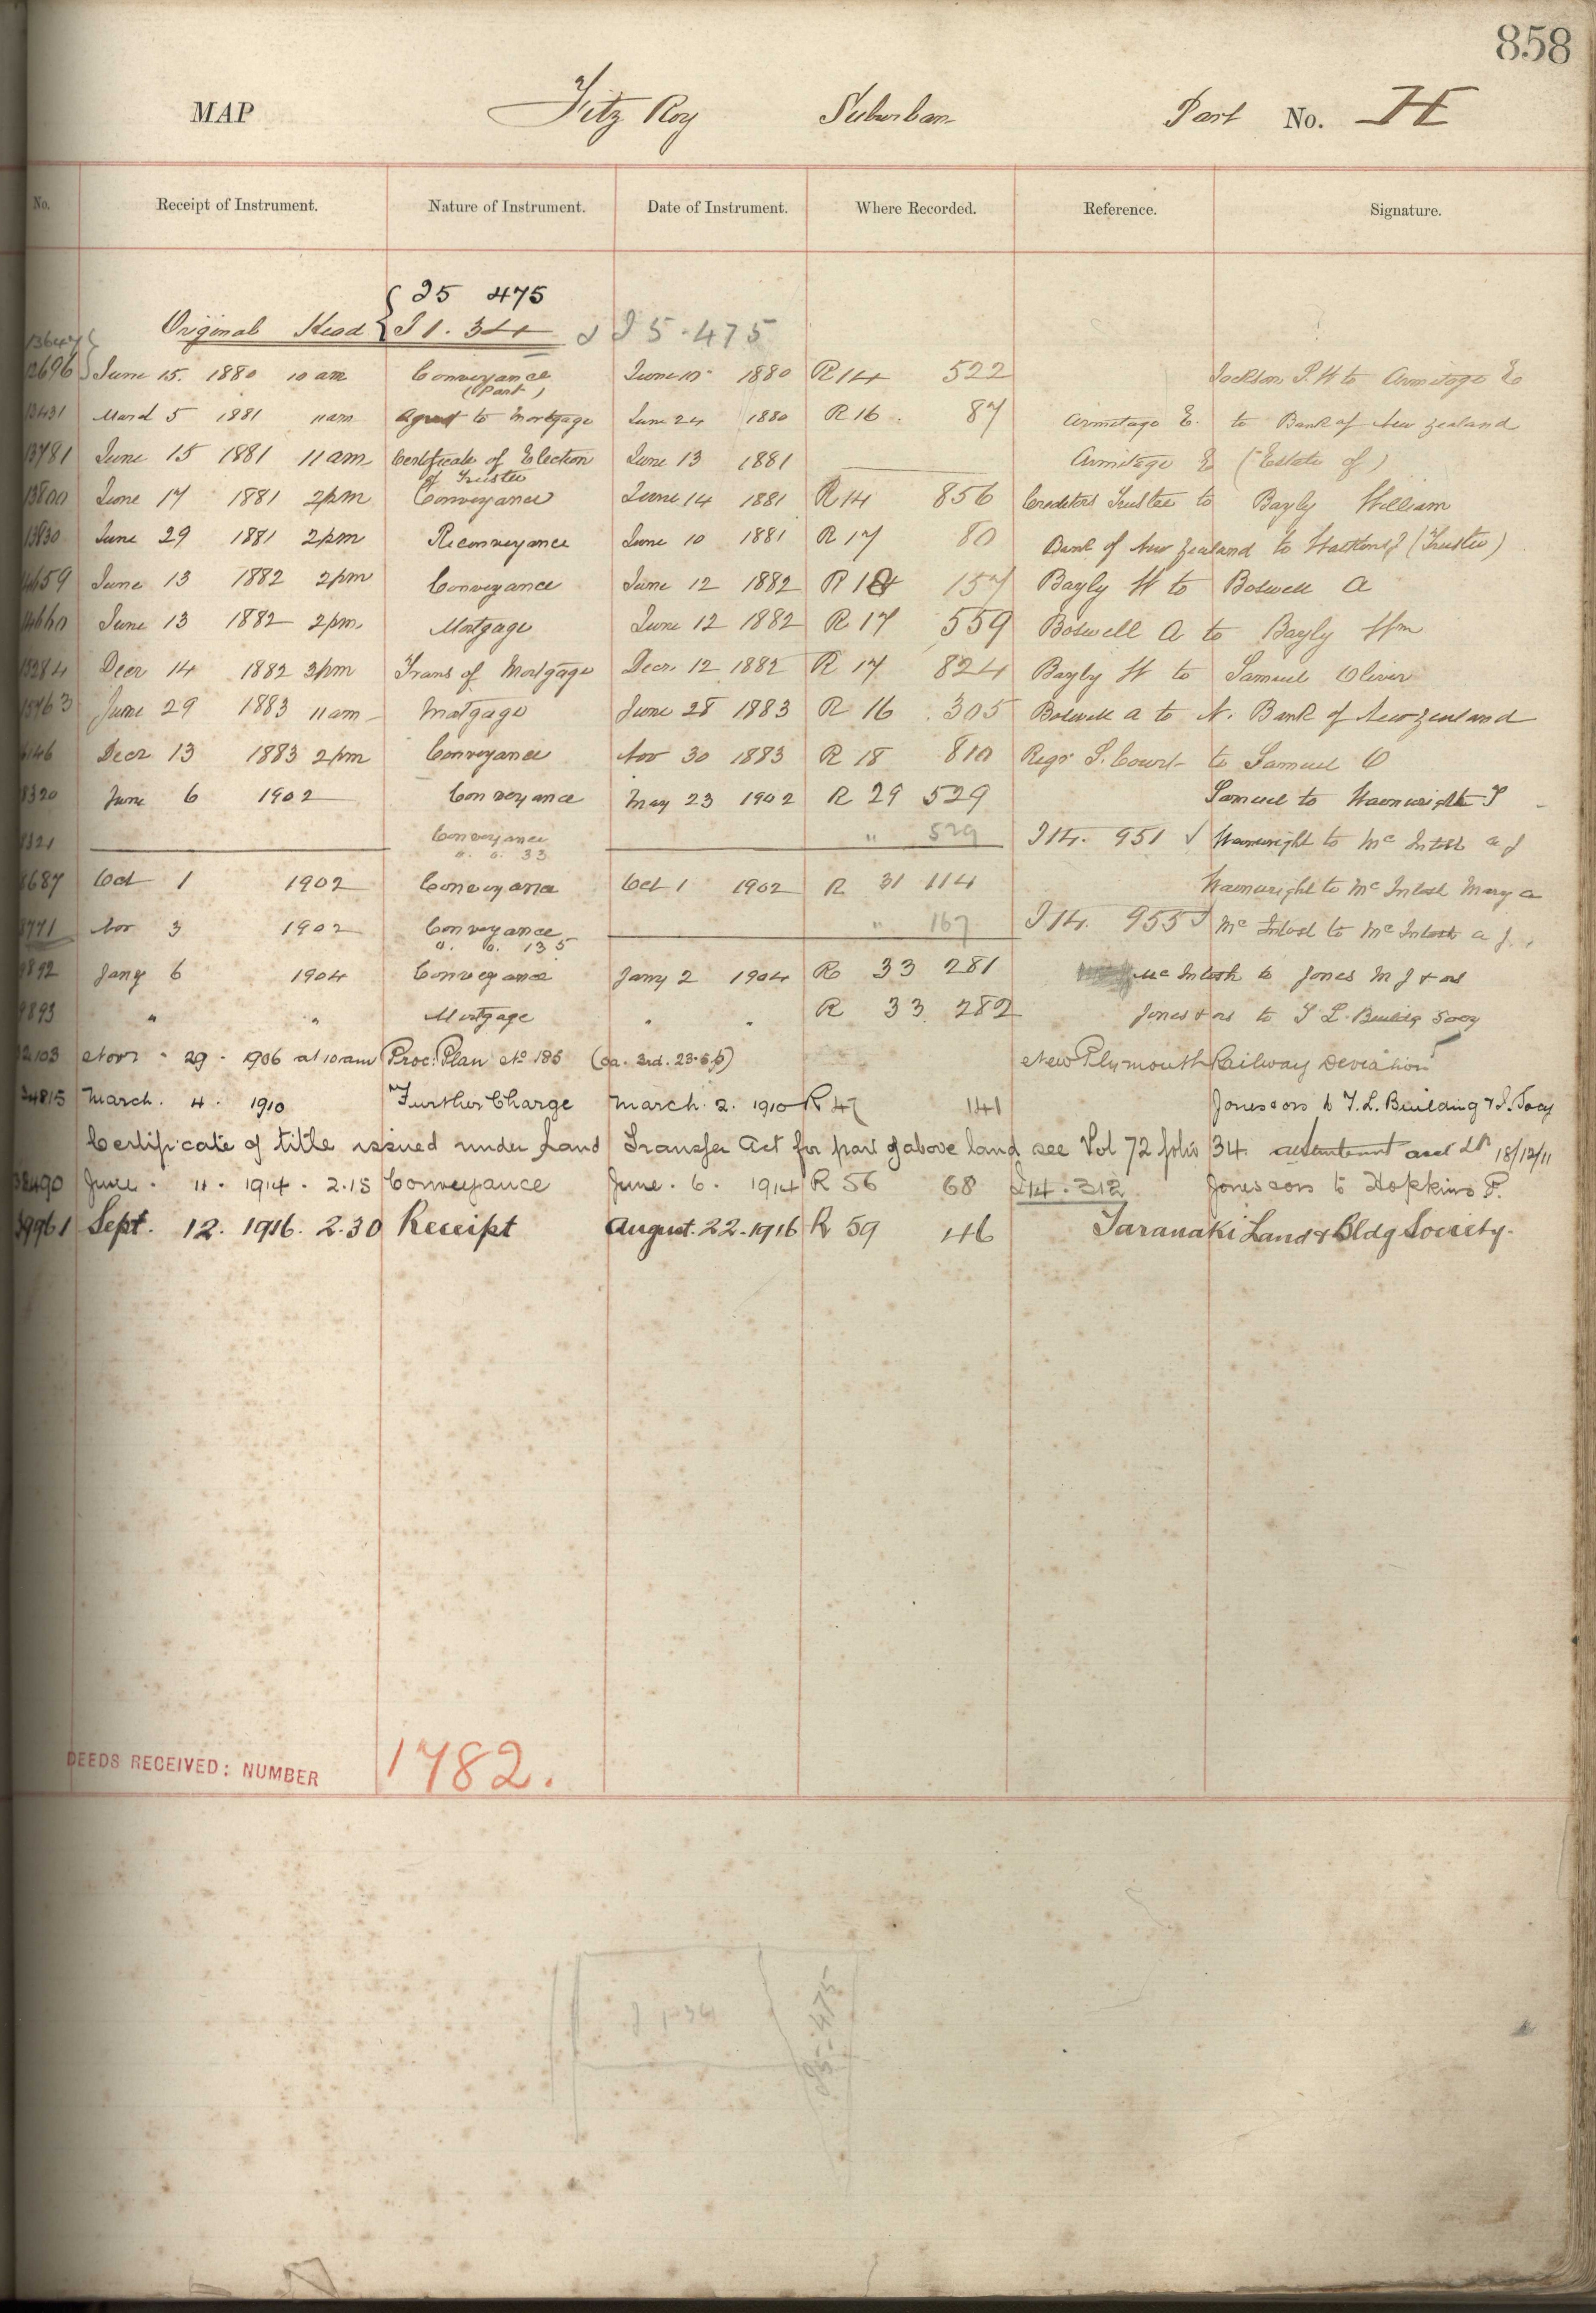 858
MAP Fitz Roy Suburban Part No. H
No. Receipt of Instrument. Nature of Instrument. Date of Instrument. Where Recorded. Reference. Signature.
I5 475
Original Head I 1. 344 & I 5.475
13647
12696 June 15. 1880 10 am Conveyance (Part) June 10 1880 R14 522 Jackson J. H to Armitage E
13431 March 5 1881 11am Agreet to Mortgage June 24 1880 R16. 87 Armitage E. to Bank of New Zealand
13781 June 15 1881 11am Certificate of Election of Trustee June 13 1881 Armitage E (Estate of)
13800 June 17 1881 2pm Conveyance June 14 1881 R14 856 Creditors Trustee to Bayly William
13830 June 29 1881 2pm Reconveyance June 10 1881 R17 80 Bank of New Zealand to (Trustee)
14659 June 13 1882 2pm Conveyance June 12 1882 R 18 157 Bayly W to Boswell A
14660 June 13 1882 2pm. Mortgage June 12 1882 R 17 559 Boswell A to Bayly Wm
15284 Decr 14 1882 3pm Trans of Mortgage Decr. 12 1882 R 17 824 Bayly W to Samuel Oliver
15763 June 29 1883 11am Mortgage June 28 1883 R 16 305 Boswell A to N. Bank of New Zealand
6146 Decr 13 1883 2pm Conveyance Nov 30 1883 R 18 810 Regr S. Court to Samuel O
8320 June 6 1902 Conveyance May 23 1902 R 29 529 Samuel to Wainwright J
8321 Conveyance o. o. 33 " 529 I14. 951 √ Wainwright to McIntosh a J
8687 Oct 1 1902 Conveyance Oct 1 1902 R 31 114 Wainwright to McIntosh Mary a
8771 Nov 3 1902 Conveyance o. o. 135 " 167 I14. 955 √ McIntosh to McIntosh a J.
9892 Jany 6 1904 Conveyance Jany 2 1904 R 33 281 McIntosh to Jones M J & ors
9893 " " Mortgage " " R 33 282 Jones & ors to T L Building Socy
12103 Novr. 29. 1906 at 10am Proc: Plan No 186 (0a. 3rd. 23.5p) New Plymouth Railway Deviation
34815 March. 4. 1910 Further Charge March. 2. 1910 R 47 141 Jones & ors to T. L. Building & I. Socy
Certificate of title issued under Land Transfer Act for part of above land see Vol 72 folio 34. 18/12/11
38490 June. 11. 1914. 2.15 Conveyance June. 6. 1914 R 56 68 I14. 312 Jones & ors to Hopkins F.
39961 Sept. 12. 1916. 2.30 Receipt August. 22. 1916 R 59 46 Taranaki Land & Bldg Society.
DEEDS RECEIVED: NUMBER 1782.
I 1-34
I5-475